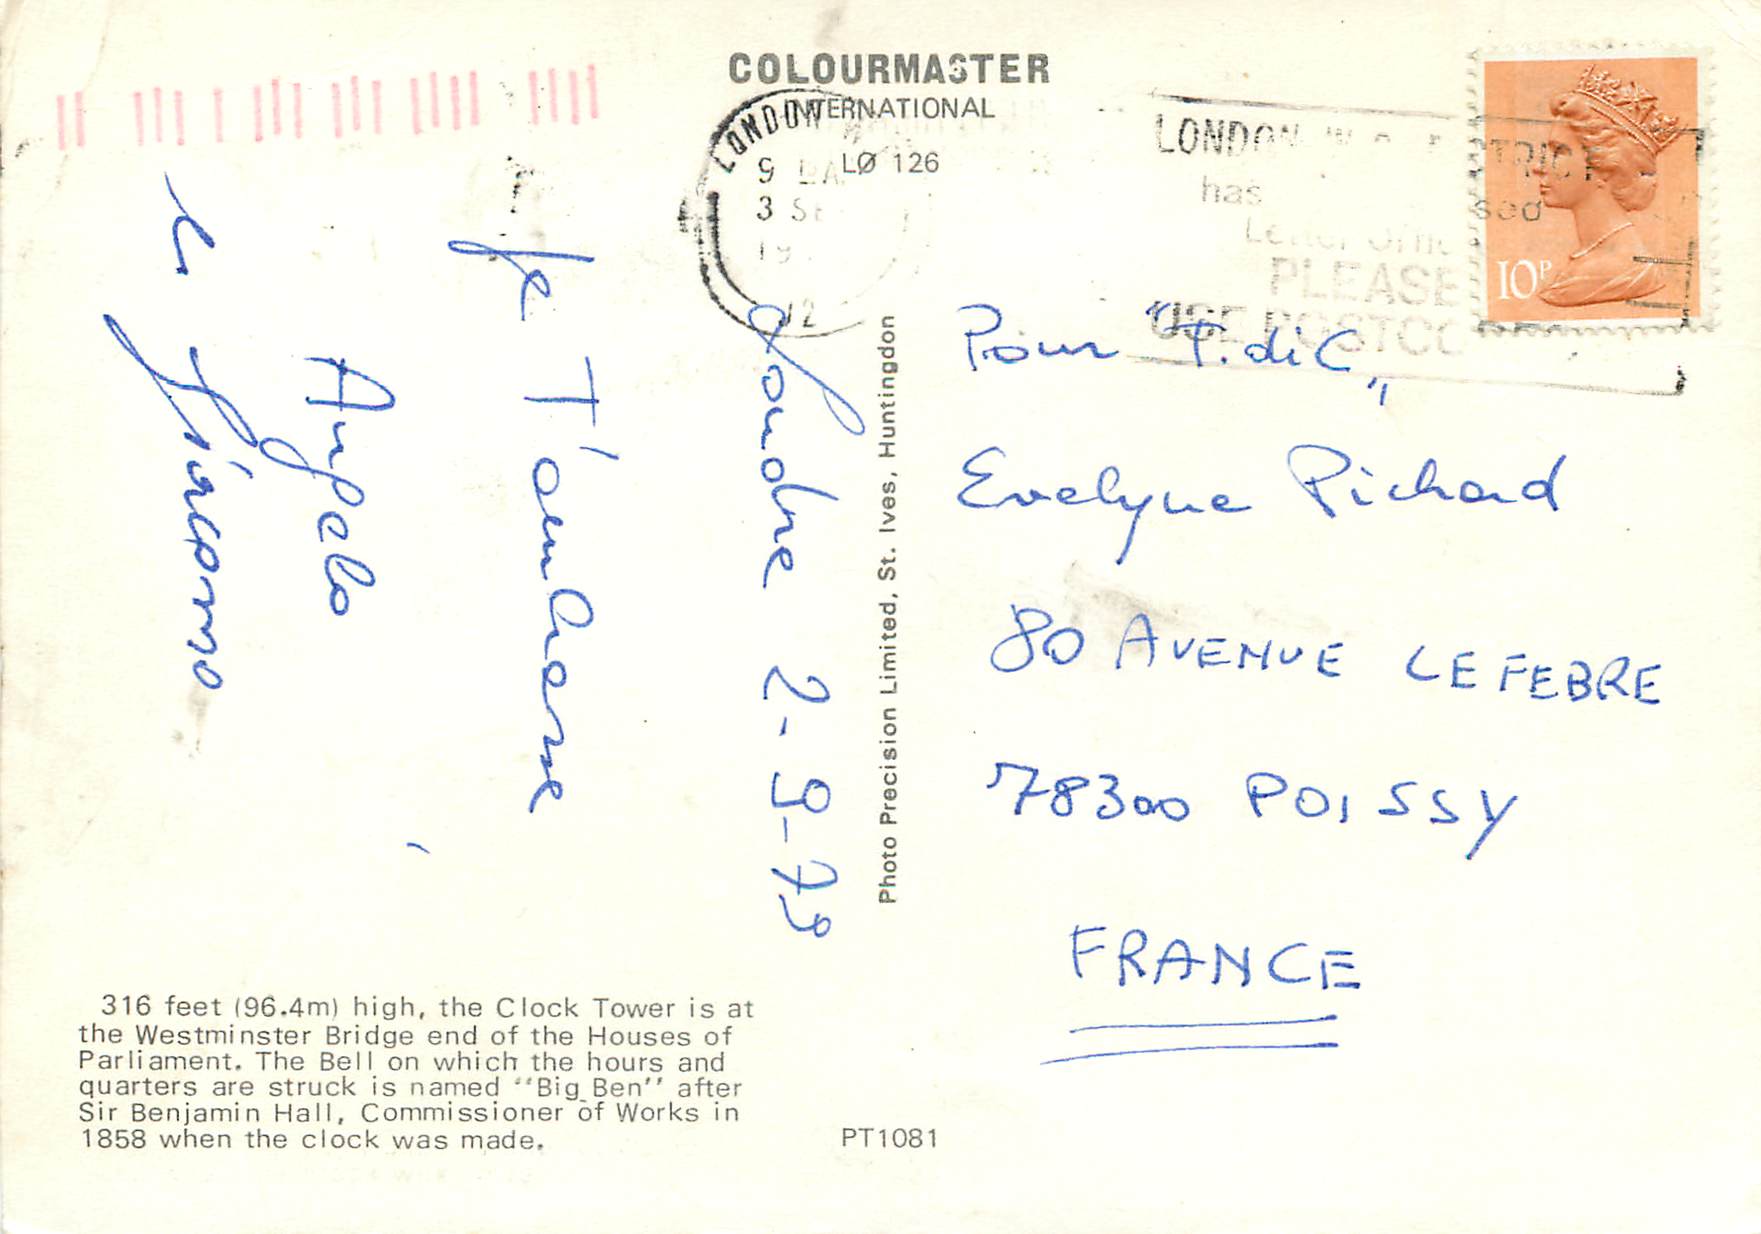 COLOURMASTER
INTERNATIONAL
LØ 126
LONDON
9
3 SE
19
12
LONDON
has
PLEASE
USE POSTCO
10P
Londre 2-9-79
Je T'embrasse
Angelo
e Giacomo
Photo Precision Limited, St. Ives, Huntingdon
Pour "T. di C"
Evelyne Richard
80 AVENUE LEFEBRE
78300 POISSY
FRANCE
316 feet (96.4m) high, the Clock Tower is at
the Westminster Bridge end of the Houses of
Parliament. The Bell on which the hours and
quarters are struck is named "Big Ben" after
Sir Benjamin Hall, Commissioner of Works in
1858 when the clock was made.
PT1081